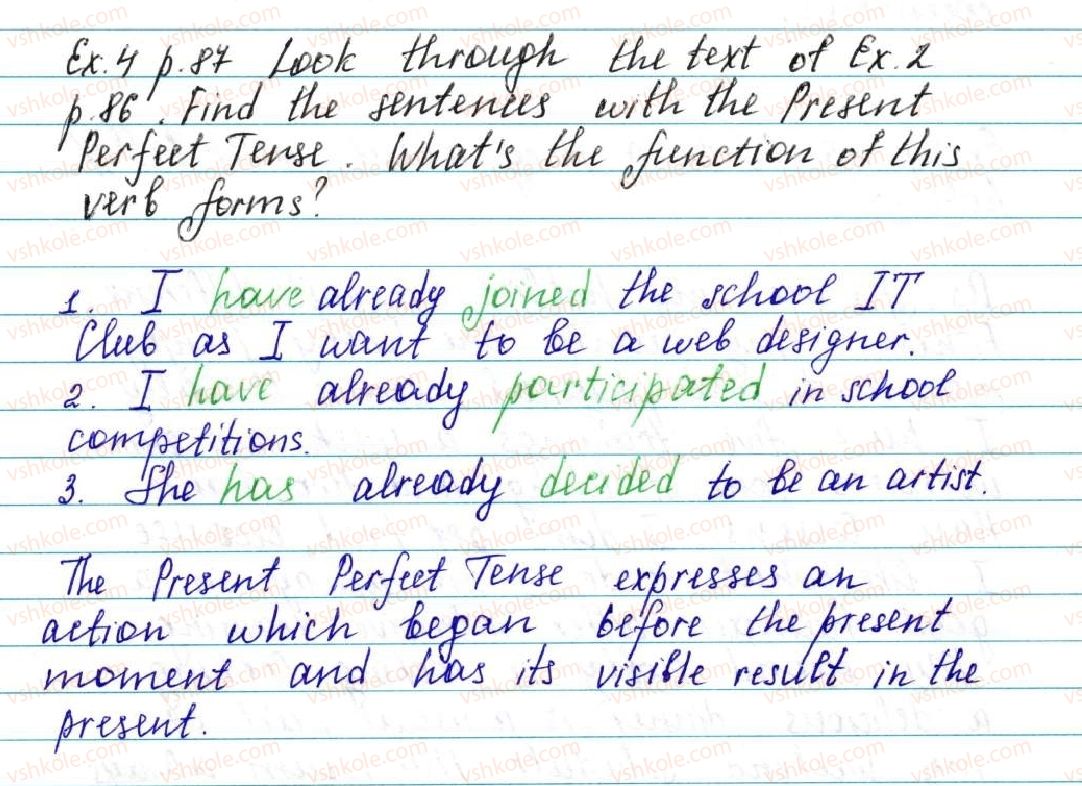 Ex. 4 p. 87 Look through the text of Ex. 2
p. 86. Find the sentences with the Present
Perfect Tense. What's the function of this
verb forms?
1. I have already joined the school IT
Club as I want to be a web designer.
2. I have already participated in school
competitions.
3. She has already decided to be an artist.
The Present Perfect Tense expresses an
action which began before the present
moment and has its visible result in the
present.